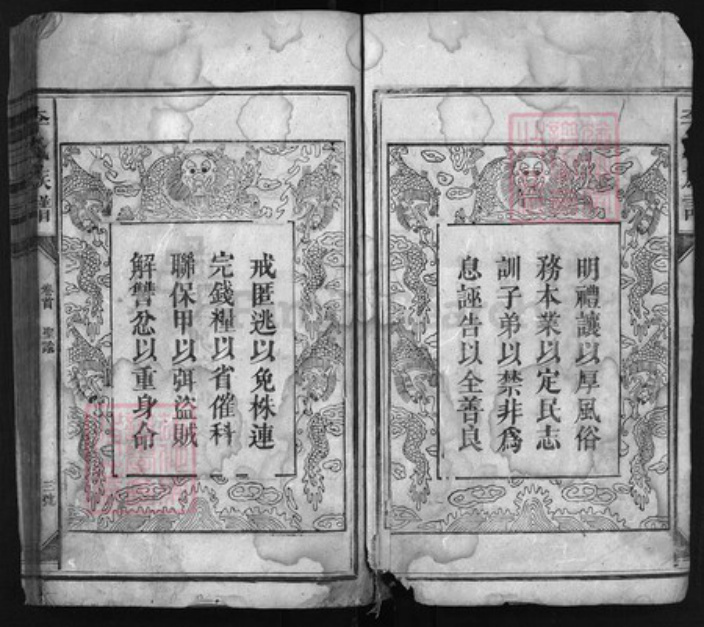 明禮讓以厚風俗
務本業以定民志
訓子弟以禁非爲
息誣告以全善良
戒匿逃以免株連
完錢糧以省催科
聯保甲以弭盜賊
解讐忿以重身命
族譜
卷首 聖諭
三